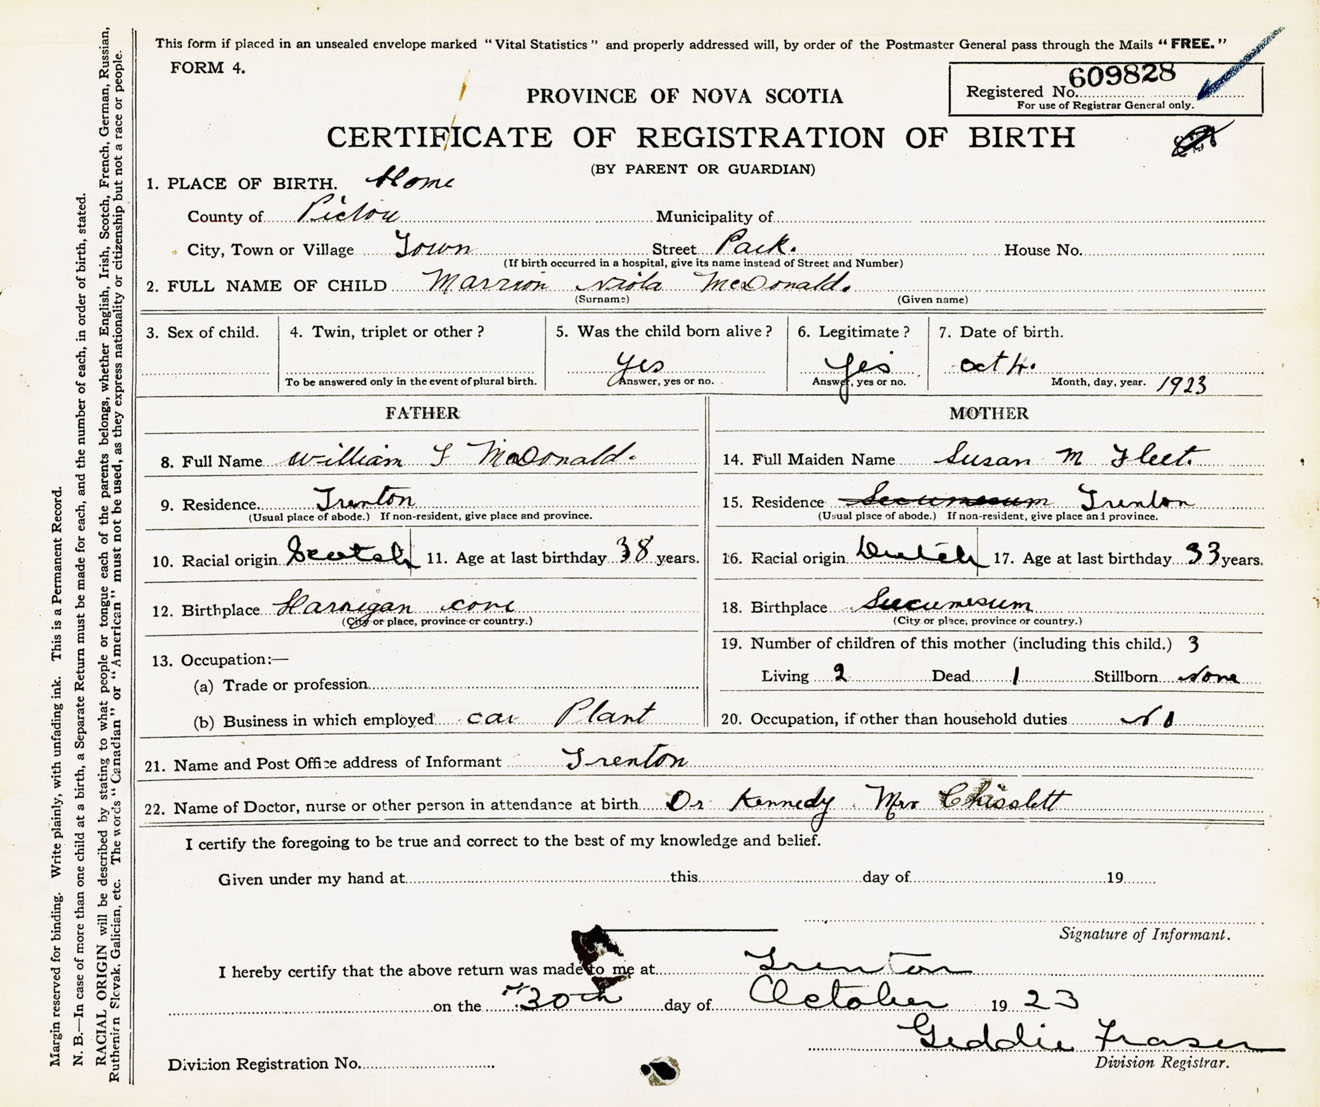 This form if placed in an unsealed envelope marked "Vital Statistics" and properly addressed will, by order of the Postmaster General pass through the Mails "FREE."
FORM 4.
609828
Registered No.
For use of Registrar General only.
PROVINCE OF NOVA SCOTIA
CERTIFICATE OF REGISTRATION OF BIRTH
(BY PARENT OR GUARDIAN)
1. PLACE OF BIRTH. Home
County of Pictou Municipality of
City, Town or Village Town Street Park. House No.
(If birth occurred in a hospital, give its name instead of Street and Number)
2. FULL NAME OF CHILD Marrion Viola McDonald.
(Surname) (Given name)
3. Sex of child. 4. Twin, triplet or other? 5. Was the child born alive? 6. Legitimate? 7. Date of birth.
yes yes oct 4.
To be answered only in the event of plural birth. Answer, yes or no. Answer, yes or no. Month, day, year. 1923
FATHER MOTHER
8. Full Name William F McDonald. 14. Full Maiden Name Susan M Fleet.
9. Residence. Trenton 15. Residence Secumseum Trenton
(Usual place of abode.) If non-resident, give place and province. (Usual place of abode.) If non-resident, give place and province.
10. Racial origin Scotch 11. Age at last birthday 38 years. 16. Racial origin Dutch 17. Age at last birthday 33 years.
12. Birthplace Harrigan cove 18. Birthplace Secumseum
(City or place, province or country.) (City or place, province or country.)
19. Number of children of this mother (including this child.) 3
13. Occupation:—
(a) Trade or profession Living 2 Dead 1 Stillborn None
(b) Business in which employed car Plant 20. Occupation, if other than household duties No
21. Name and Post Office address of Informant Trenton
22. Name of Doctor, nurse or other person in attendance at birth Dr Kennedy. Mrs Chisslett
I certify the foregoing to be true and correct to the best of my knowledge and belief.
Given under my hand at this day of 19
Signature of Informant.
I hereby certify that the above return was made to me at Trenton
on the 30th day of October 1923
Geddie Fraser
Division Registration No. Division Registrar.
Margin reserved for binding. Write plainly, with unfading ink. This is a Permanent Record.
N. B.—In case of more than one child at a birth, a Separate Return must be made for each, and the number of each, in order of birth, stated.
RACIAL ORIGIN will be described by stating to what people or tongue each of the parents belongs, whether English, Irish, Scotch, French, German, Russian,
Ruthenian Slovak, Galician, etc. The words "Canadian" or "American" must not be used, as they express nationality or citizenship but not a race or people.